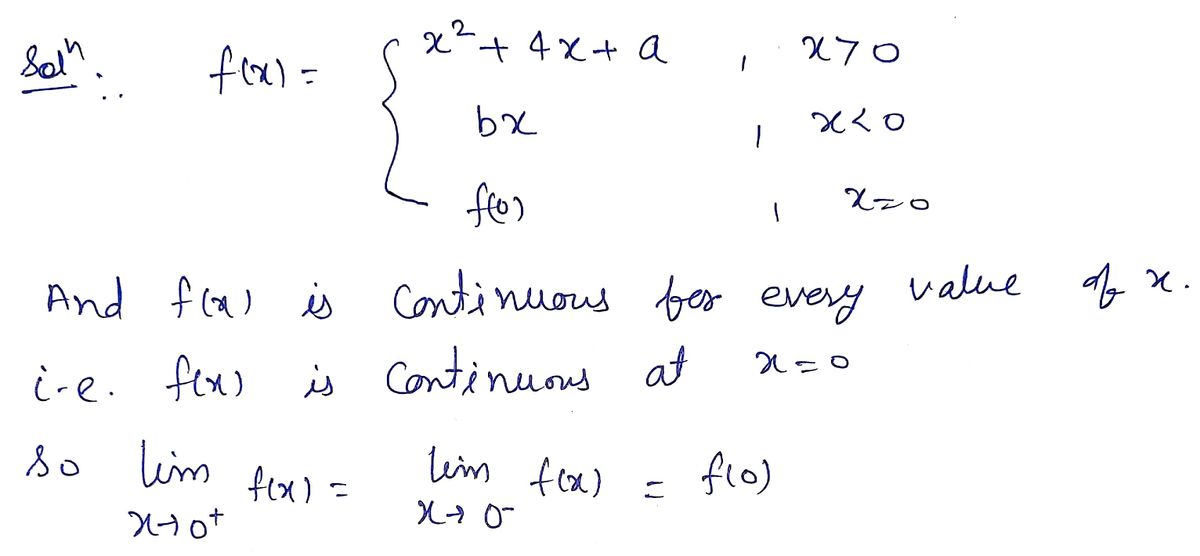 Solⁿ: f(x) = { x² + 4x + a , x>0
bx , x<0
f(0) , x=0
And f(x) is Continuous for every value of x.
i.e. f(x) is Continuous at x=0
So lim x→0⁺ f(x) = lim x→0⁻ f(x) = f(0)